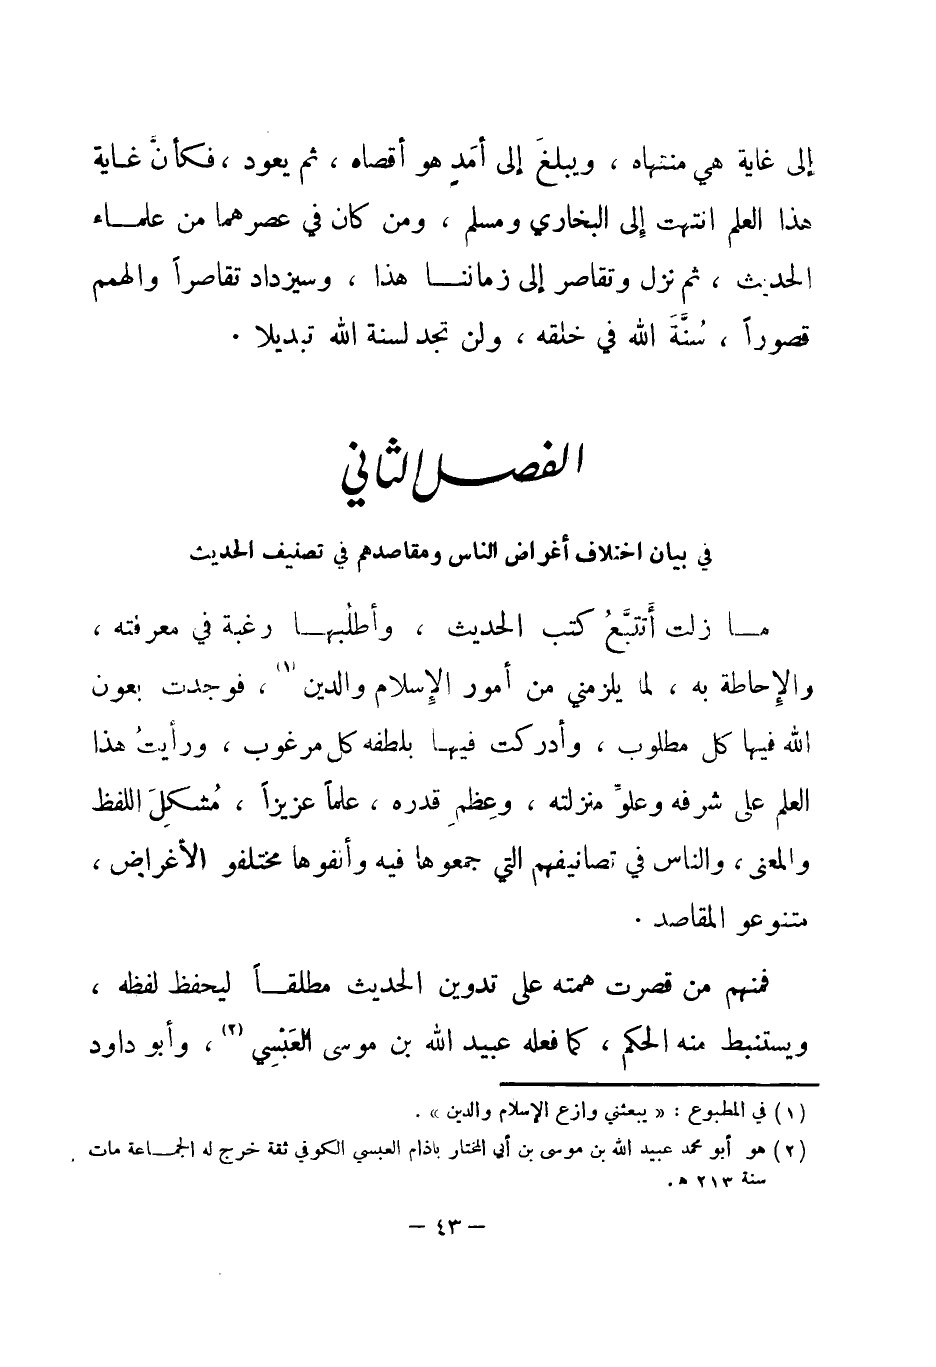 إلى غاية هي منتهاه ، ويبلغَ إلى أمَدٍ هو أقصاه ، ثم يعود ، فكأنَّ غاية
هذا العلم انتهت إلى البخاري ومسلم ، ومن كان في عصرهما من علماء
الحديث ، ثم نزل وتقاصر إلى زماننا هذا ، وسيزداد تقاصراً والهمم
قصوراً ، سُنَّةَ الله في خلقه ، ولن تجد لسنة الله تبديلا .
الفصل الثاني
في بيان اختلاف أغراض الناس ومقاصدهم في تصنيف الحديث
ما زلت أَتتبَّعُ كتب الحديث ، وأطلُبها رغبة في معرفته ،
والإحاطة به ، لما يلزمني من أمور الإسلام والدين (١) ، فوجدت بعون
الله فيها كل مطلوب ، وأدركت فيها بلطفه كل مرغوب ، ورأيتُ هذا
العلم على شرفه وعلوِّ منزلته ، وعِظمِ قدره ، علماً عزيزاً ، مُشكِلَ اللفظ
والمعنى ، والناس في تصانيفهم التي جمعوها فيه وألفوها مختلفو الأغراض ،
متنوعو المقاصد .
فمنهم من قصرت همته على تدوين الحديث مطلقاً ليحفظ لفظه ،
ويستنبط منه الحكم ، كما فعله عبيد الله بن موسى العَبْسِي (٢) ، وأبو داود
(١) في المطبوع : « يبعثني وازع الإسلام والدين » .
(٢) هو أبو محمد عبيد الله بن موسى بن أبي المختار باذام العبسي الكوفي ثقة خرج له الجماعة مات
سنة ٢١٣ ه‍ .
– ٤٣ –